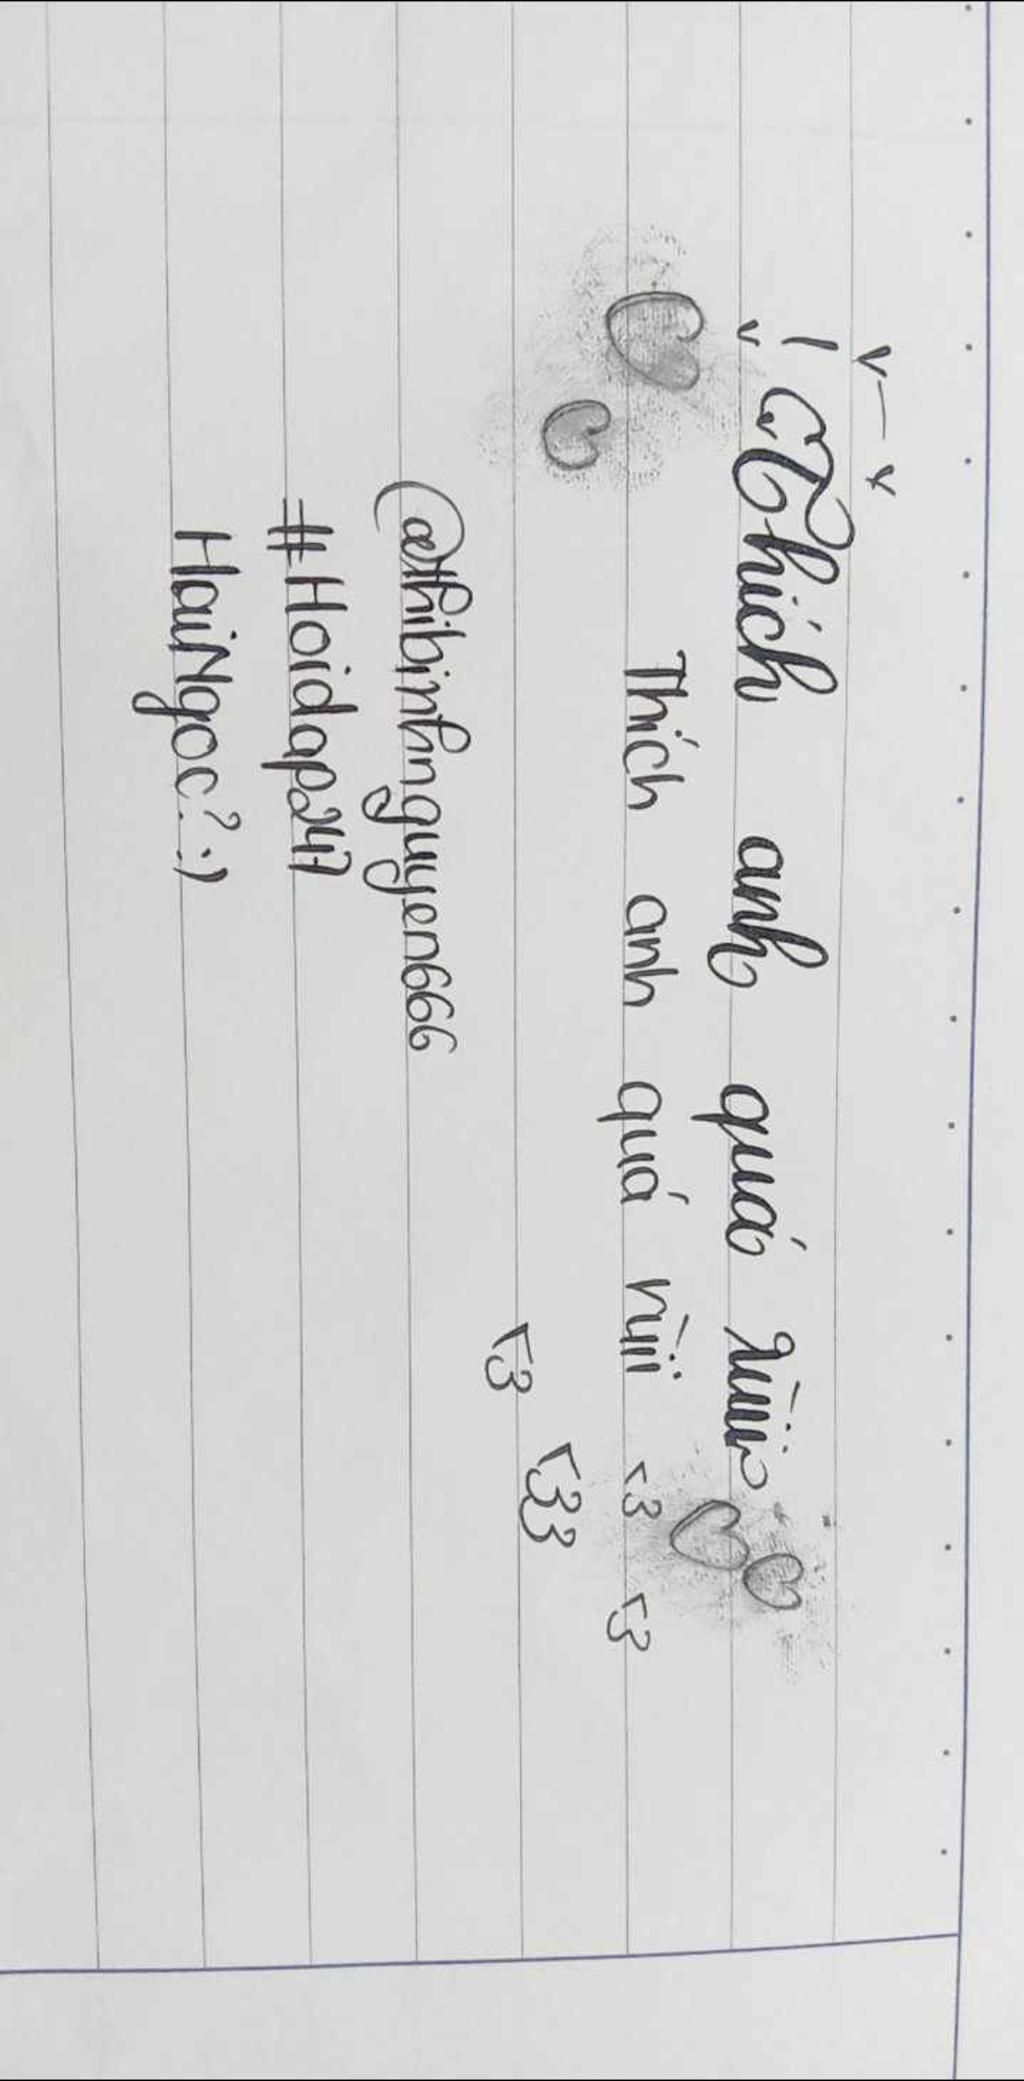 Thích anh quá rùiii
Thích anh quá rùiii <3 <3
<3 <33
@thibinhnguyen666
#Hoidap247
HaiNgoc? :)